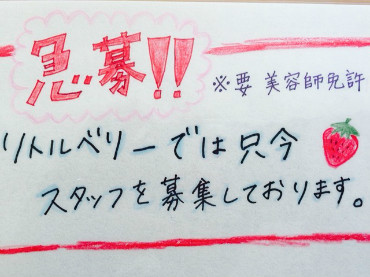 急募!!
※要 美容師免許
リトルベリーでは只今
スタッフを募集しております。